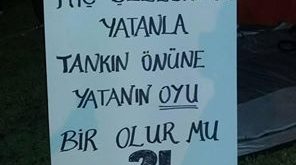 HİÇ
YATANLA
TANKIN ÖNÜNE
YATANIN OYU
BİR OLUR MU
?!